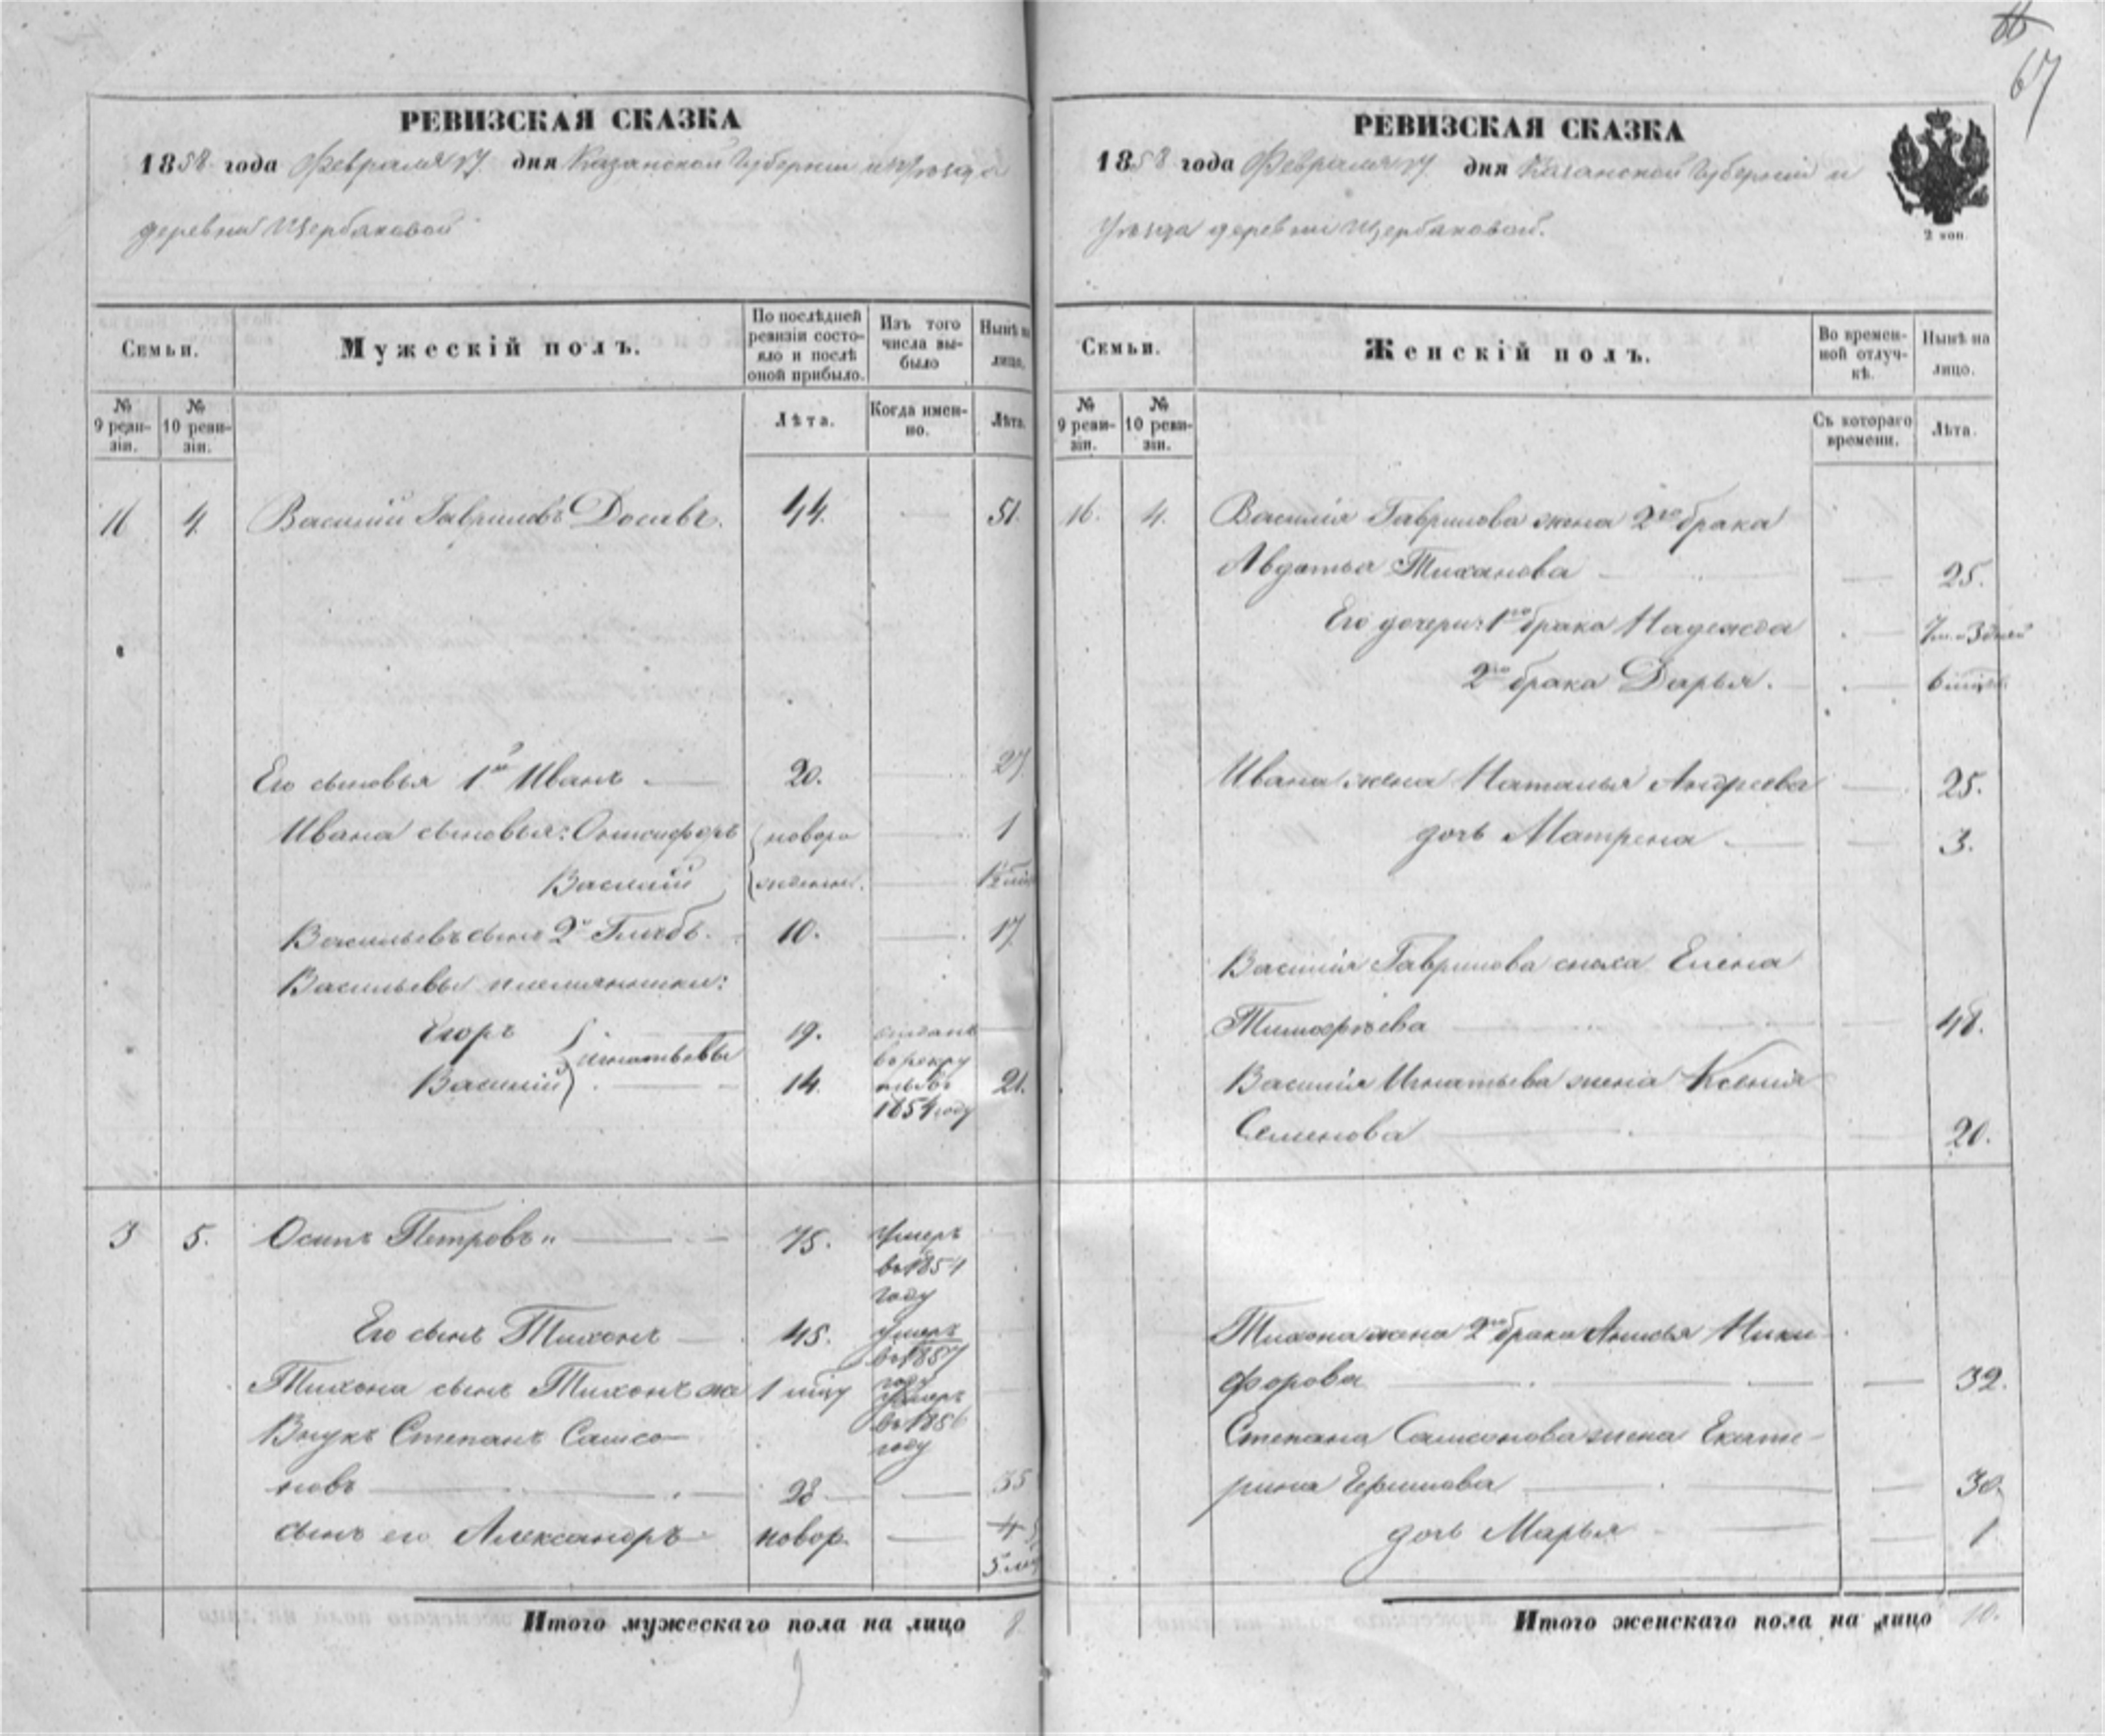 67
РЕВИЗСКАЯ СКАЗКА
1858 года Февраля 17 дня Казанской Губернии и Уѣзда
деревни Щербаковой
Семьи.
Мужескій полъ.
По послѣдней ревизіи состояло и послѣ оной прибыло.
Изъ того числа выбыло
Нынѣ на лицо.
№ 9 ревизіи.
№ 10 ревизіи.
Лѣта.
Когда именно.
Лѣта.
16 4 Василій Гавриловъ 44. 51.
Его сыновья 1й Иванъ 20. 27
Ивана сыновья: Онисифоръ новоро 1
Василій жденные.
Васильевъ сынъ 2й Глѣбъ. 10. 17
Васильевы племянники:
Егоръ Игнатьевы 19. отданъ
въ рекру
Василій 14. ты въ 21.
1854 году
3 5. Осипъ Петровъ 75. Умеръ
въ 1854
году
Его сынъ Тихонъ 45. Умеръ
въ 1857
году
Тихона сынъ Тихонъ же 1 мцу Умеръ
въ 1856
году
Внукъ Степанъ Самсо
новъ 28 35
сынъ его Александръ новор. 4
5 мѣ
Итого мужескаго пола на лицо 8
РЕВИЗСКАЯ СКАЗКА
1858 года Февраля 17 дня Казанской Губерніи и
Уѣзда деревни Щербаковой.
2 коп.
Семьи.
Женскій полъ.
Во временной отлучкѣ.
Нынѣ на лицо.
№ 9 ревизіи.
№ 10 ревизіи.
Съ котораго времени.
Лѣта.
16. 4. Василія Гаврилова жена 2го брака
Авдотья Тиханова 25.
Его дочери: 1го брака Надежда
2го брака Дарья.
Ивана жена Наталья Андреева 25.
дочь Матрена 3.
Василія Гаврилова сноха Елена
Тимофѣева 48.
Василія Игнатьева жена Ксенія
Семенова 20.
Тихона жена 2го брака Анисья Ники
форова 32.
Степана Самсонова жена Екате-
рина Ефимова 30.
дочь Марья 1
Итого женскаго пола на лицо 10.